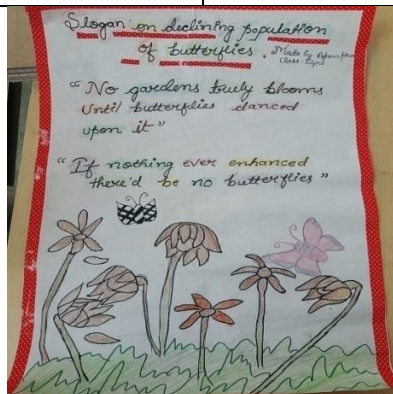 Slogan on declining population
of butterflies.
Made by
Class-
"No gardens truly blooms
Until butterflies danced
upon it"
"If nothing ever enhanced
there'd be no butterflies"